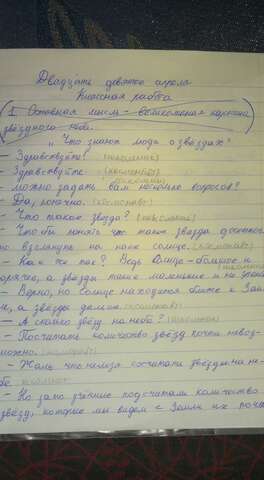 Двадцать девятое апреля
Классная работа
(1. Основная мысль - великолепная картина
звёздного неба.
"Что знают люди о звёздах"
- Здравствуйте! (школьник)
- Здравствуйте. (космонавт)
можно задать вам несколько вопросов? (школьник)
Да, конечно. (космонавт)
- Что такое звезда? (школьник)
- Что бы понять что такое звезда достаточно
взглянуть на наше солнце. (космонавт)
- Как же так? Ведь Солнце большое и
горячее, а звёзды такие маленькие и (школьник)
- Верно, но Солнце находится ближе к Земле
, а звёзды далеко. (космонавт)
- А сколько звёзд на небе? (школьник)
- Посчитать количество звёзд почти невоз-
можно. (космонавт)
- Жаль, что нельзя сосчитать звёзды на не-
бе. (школьник)
- Но зато учёные подсчитали количество
звёзд, которые мы видем с Земли их почти